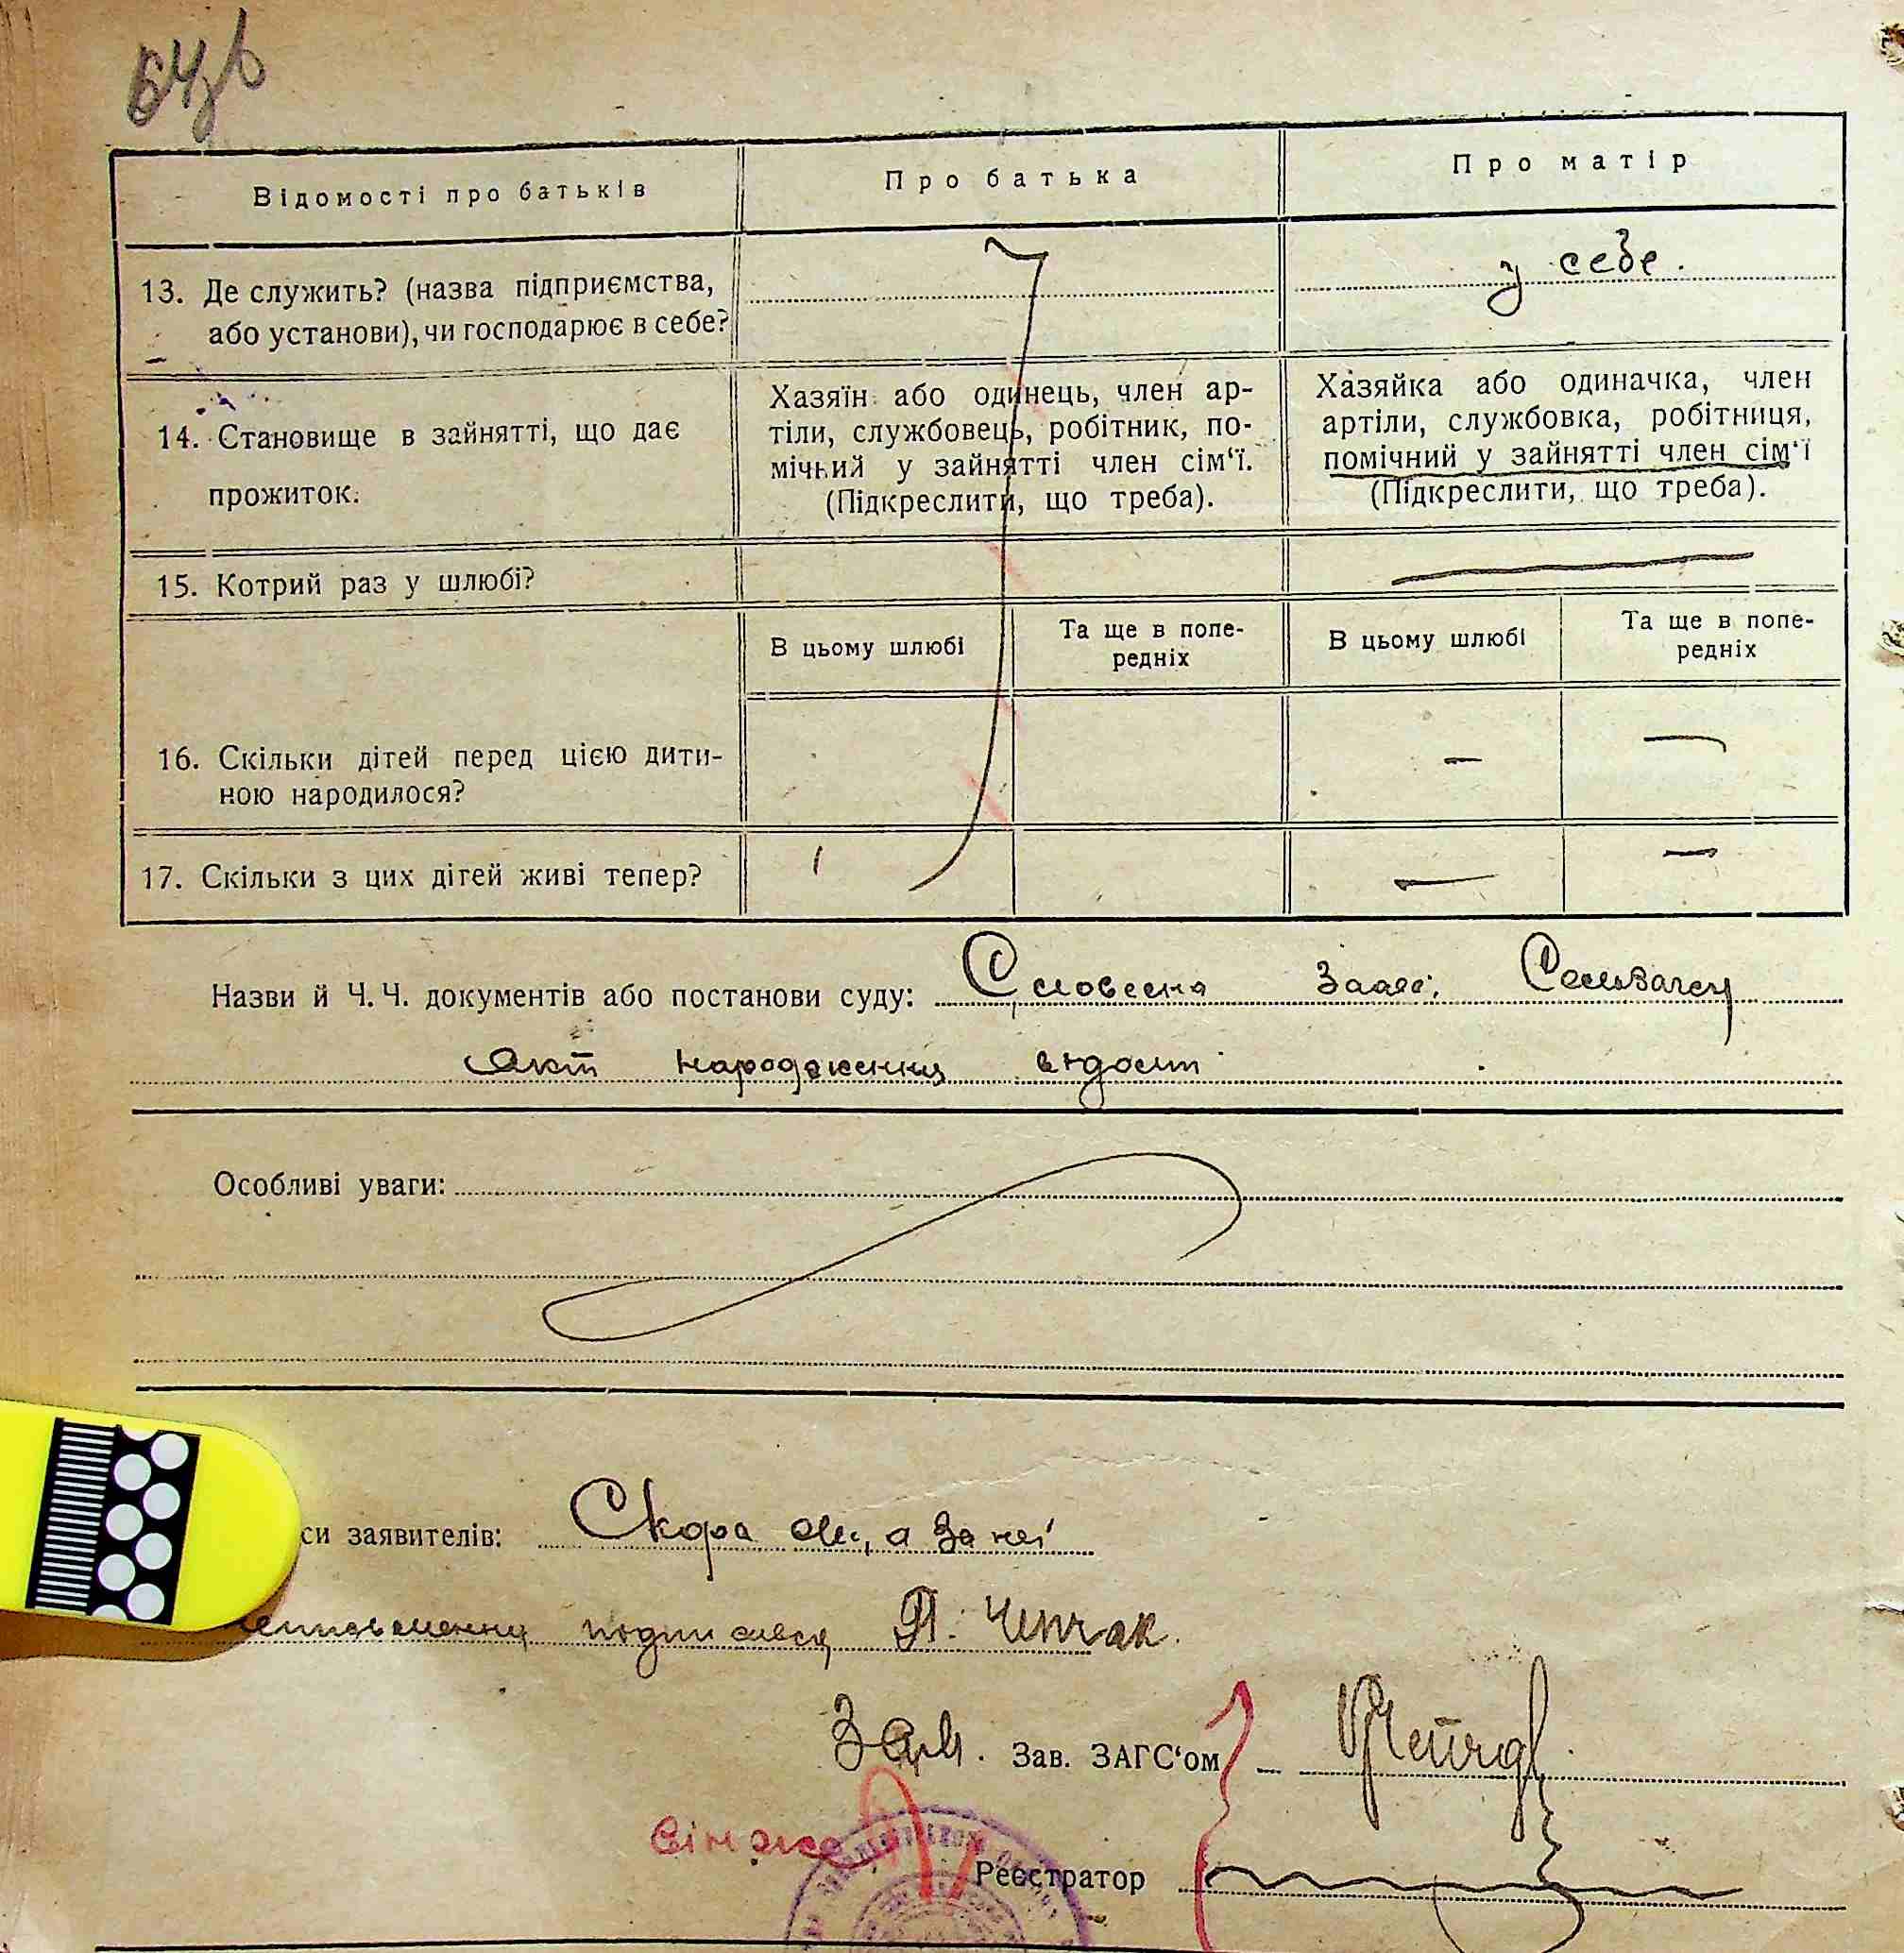 64зв
Відомості про батьків
Про батька
Про матір
13. Де служить? (назва підприємства,
або установи), чи господарює в себе?
у себе.
14. Становище в зайнятті, що дає
прожиток.
Хазяїн або одинець, член ар-
тіли, службовець, робітник, по-
мічний у зайнятті член сім‘ї.
(Підкреслити, що треба).
Хазяйка або одиначка, член
артіли, службовка, робітниця,
помічний у зайнятті член сім‘ї
(Підкреслити, що треба).
15. Котрий раз у шлюбі?
В цьому шлюбі
Та ще в попе-
редніх
В цьому шлюбі
Та ще в попе-
редніх
16. Скільки дітей перед цією дити-
ною народилося?
17. Скільки з цих дітей живі тепер?
Назви й Ч. Ч. документів або постанови суду: Словесна
акт народження
Особливі уваги:
си заявителів: Скора а за неї
П. Чепчак.
Зам. Зав. ЗАГС‘ом
він же
Реєстратор